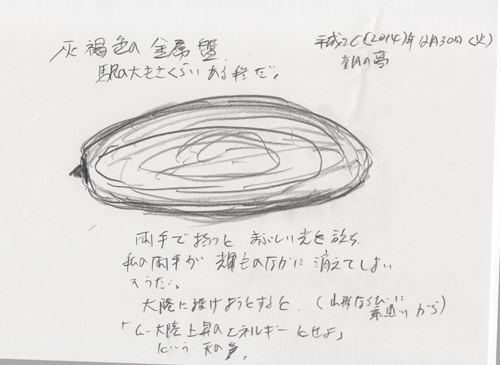 灰褐色の金属盤
平成26(2014)年12月30日(火)
朝の夢
駅の大きさくらいある
両手で持つと まぶしい光を放ち
私の両手が 輝きのなかに 消えてしまい
そうだ。
大陸に投げようとすると、( から)
「ムー大陸上昇のエネルギーとせよ」
という 天の声。